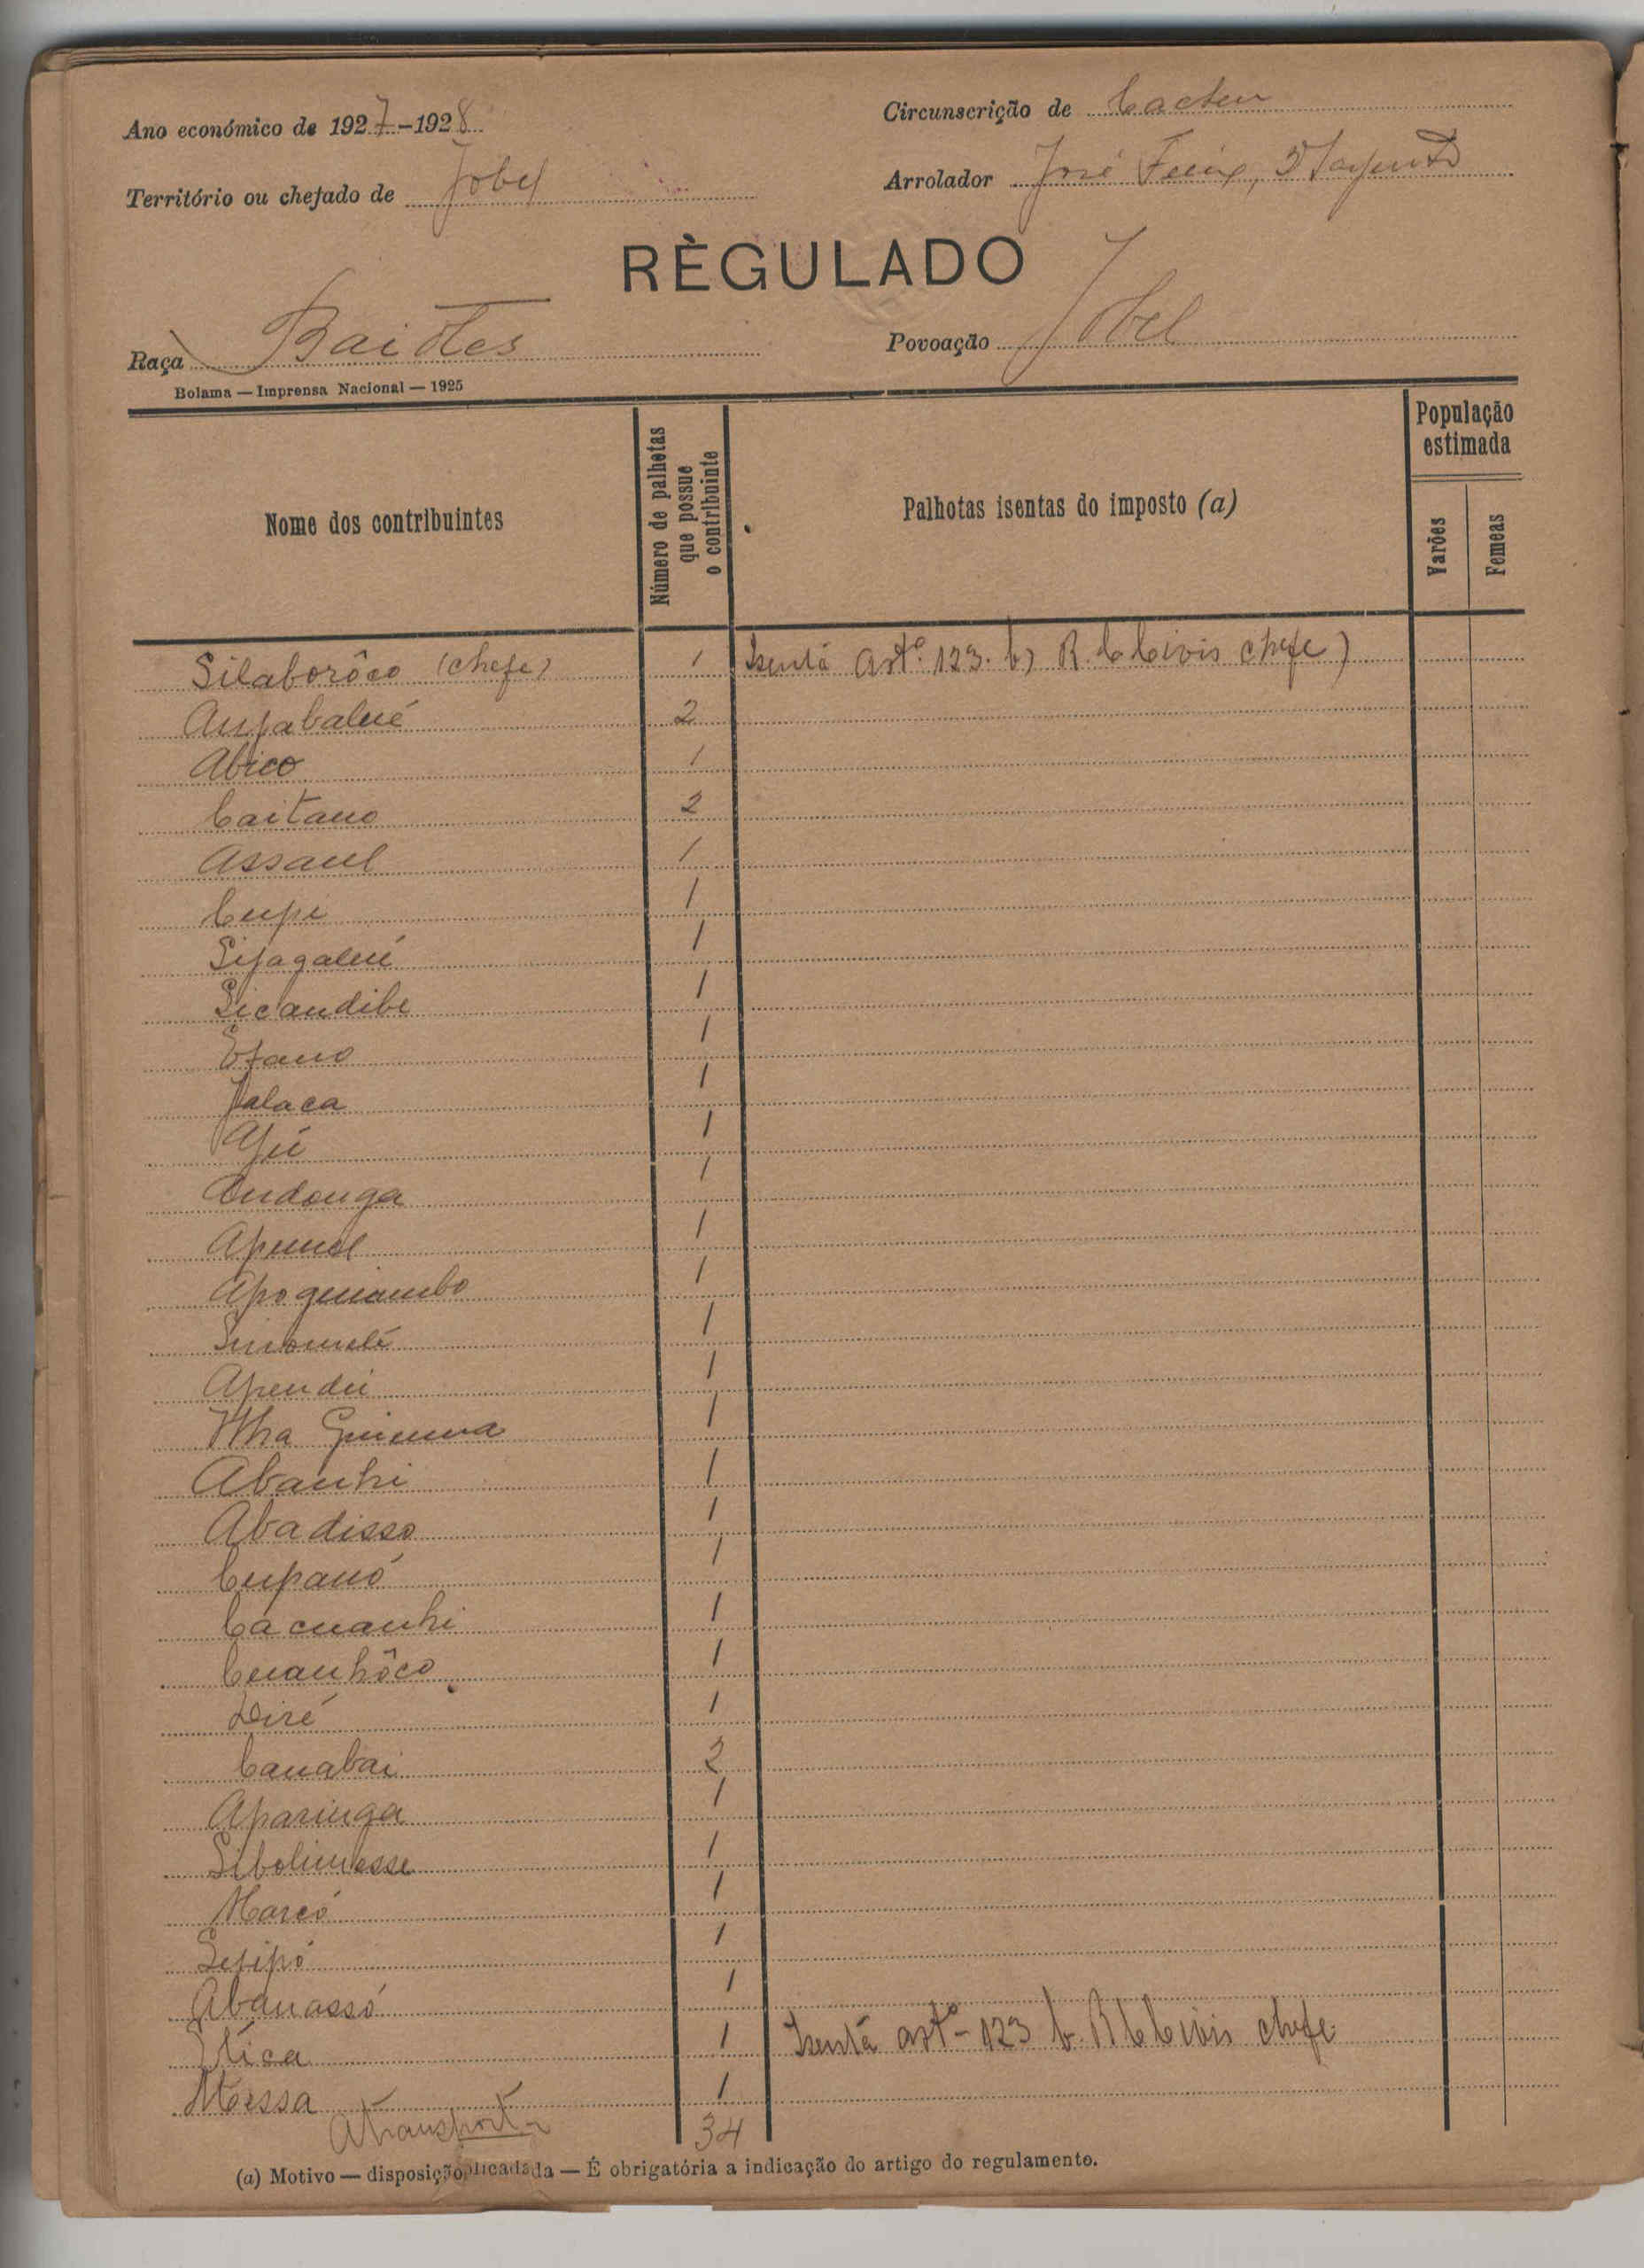 Ano económico de 1927-1928
Circunscrição de Cacheu
Território ou chefado de Jobel
Arrolador José Feliz, 2º Sargento
RÈGULADO
Raça Baiótes
Povoação Jobel
Bolama — Imprensa Nacional — 1925
Nome dos contribuintes
Número de palhotas que possue o contribuinte
Palhotas isentas do imposto (a)
População estimada
Varões
Femeas
Silaborôco (chefe) 1 Isentá artº. 123. b) R. C. Civis chefe)
Anjabalué 2
Abico 1
Caitano 2
Assaul 1
Cupi 1
Sijagalué 1
Sicandibe 1
Efano 1
Jalaca 1
Ajú 1
Andonga 1
Apumel 1
Apoguiambo 1
1
Apendú 1
Guinuma 1
Abanhi 1
Abadisso 1
Cupanó 1
Cacuanhi 1
Cuanhôco 1
Diré 1
Canabai 2
Aparinga 1
Sibolimosse 1
Marcó 1
Sejipó 1
Abanassó 1
Etica 1 Isentá artº - 123 b. R C Civis chefe
Messa 1
A transportar 34
(a) Motivo — disposição aplicada — É obrigatória a indicação do artigo do regulamento.